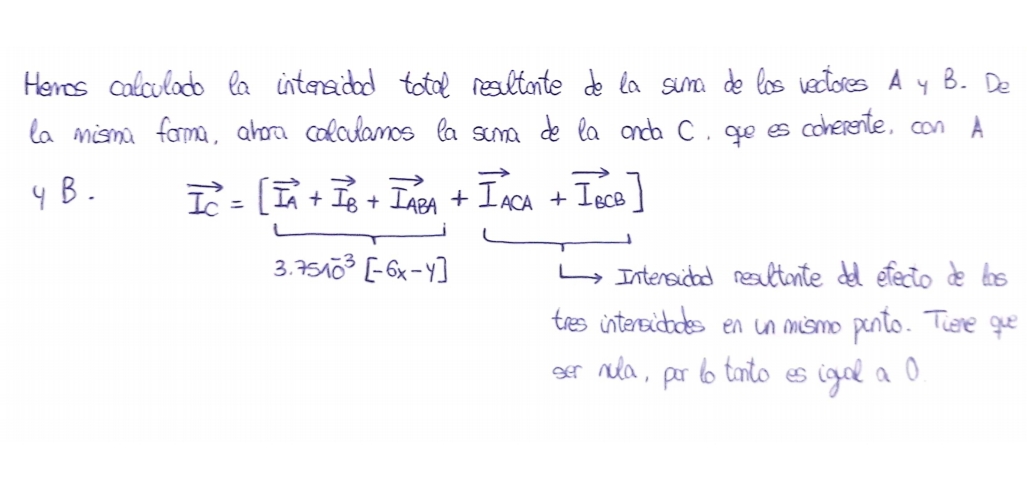 Hemos calculado la intensidad total resultante de la suma de los vectores A y B. De
la misma forma, ahora calculamos la suma de la onda C, que es coherente, con A
y B. I⃗C = [I⃗A + I⃗B + I⃗ABA + I⃗ACA + I⃗BCB]
3.75·10⁻³ [-6x-y]
→ Intensidad resultante del efecto de las
tres intensidades en un mismo punto. Tiene que
ser nula, por lo tanto es igual a 0.